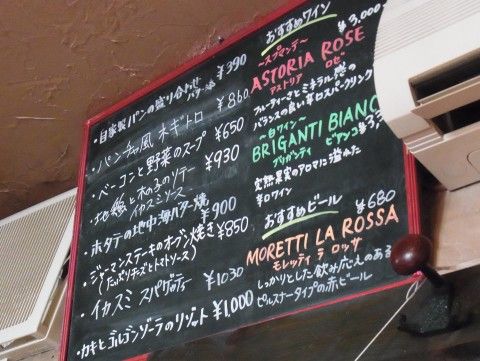 ・自家製パンの盛り合わせ ¥390
バター添
・パンチャ風ネギトロ ¥860
・ベーコンと野菜のスープ ¥650
・地鶏と木の子のソテー ¥930
イカスミソース
・ホタテの地中海バター焼 ¥900
・ジューンステーキのオーブン焼き ¥850
(たっぷりチーズとトマトソース)
・イカスミ スパゲッティー ¥1030
・カキとゴルゴンゾーラのリゾット ¥1,000
おすすめワイン
〜スプマンテ〜 ¥3,000
ASTORIA ROSE
アストリア ロゼ
フルーティーさとミネラル感の
バランスの良い辛口スパークリング
〜白ワイン〜
BRIGANTI BIANCO
ブリガンティ ビアンコ
完熟果実のアロマに溢れた
辛口ワイン
おすすめビール
¥680
MORETTI LA ROSSA
モレッティ ラ ロッサ
しっかりとした飲み応えのある
ピルスナータイプの赤ビール